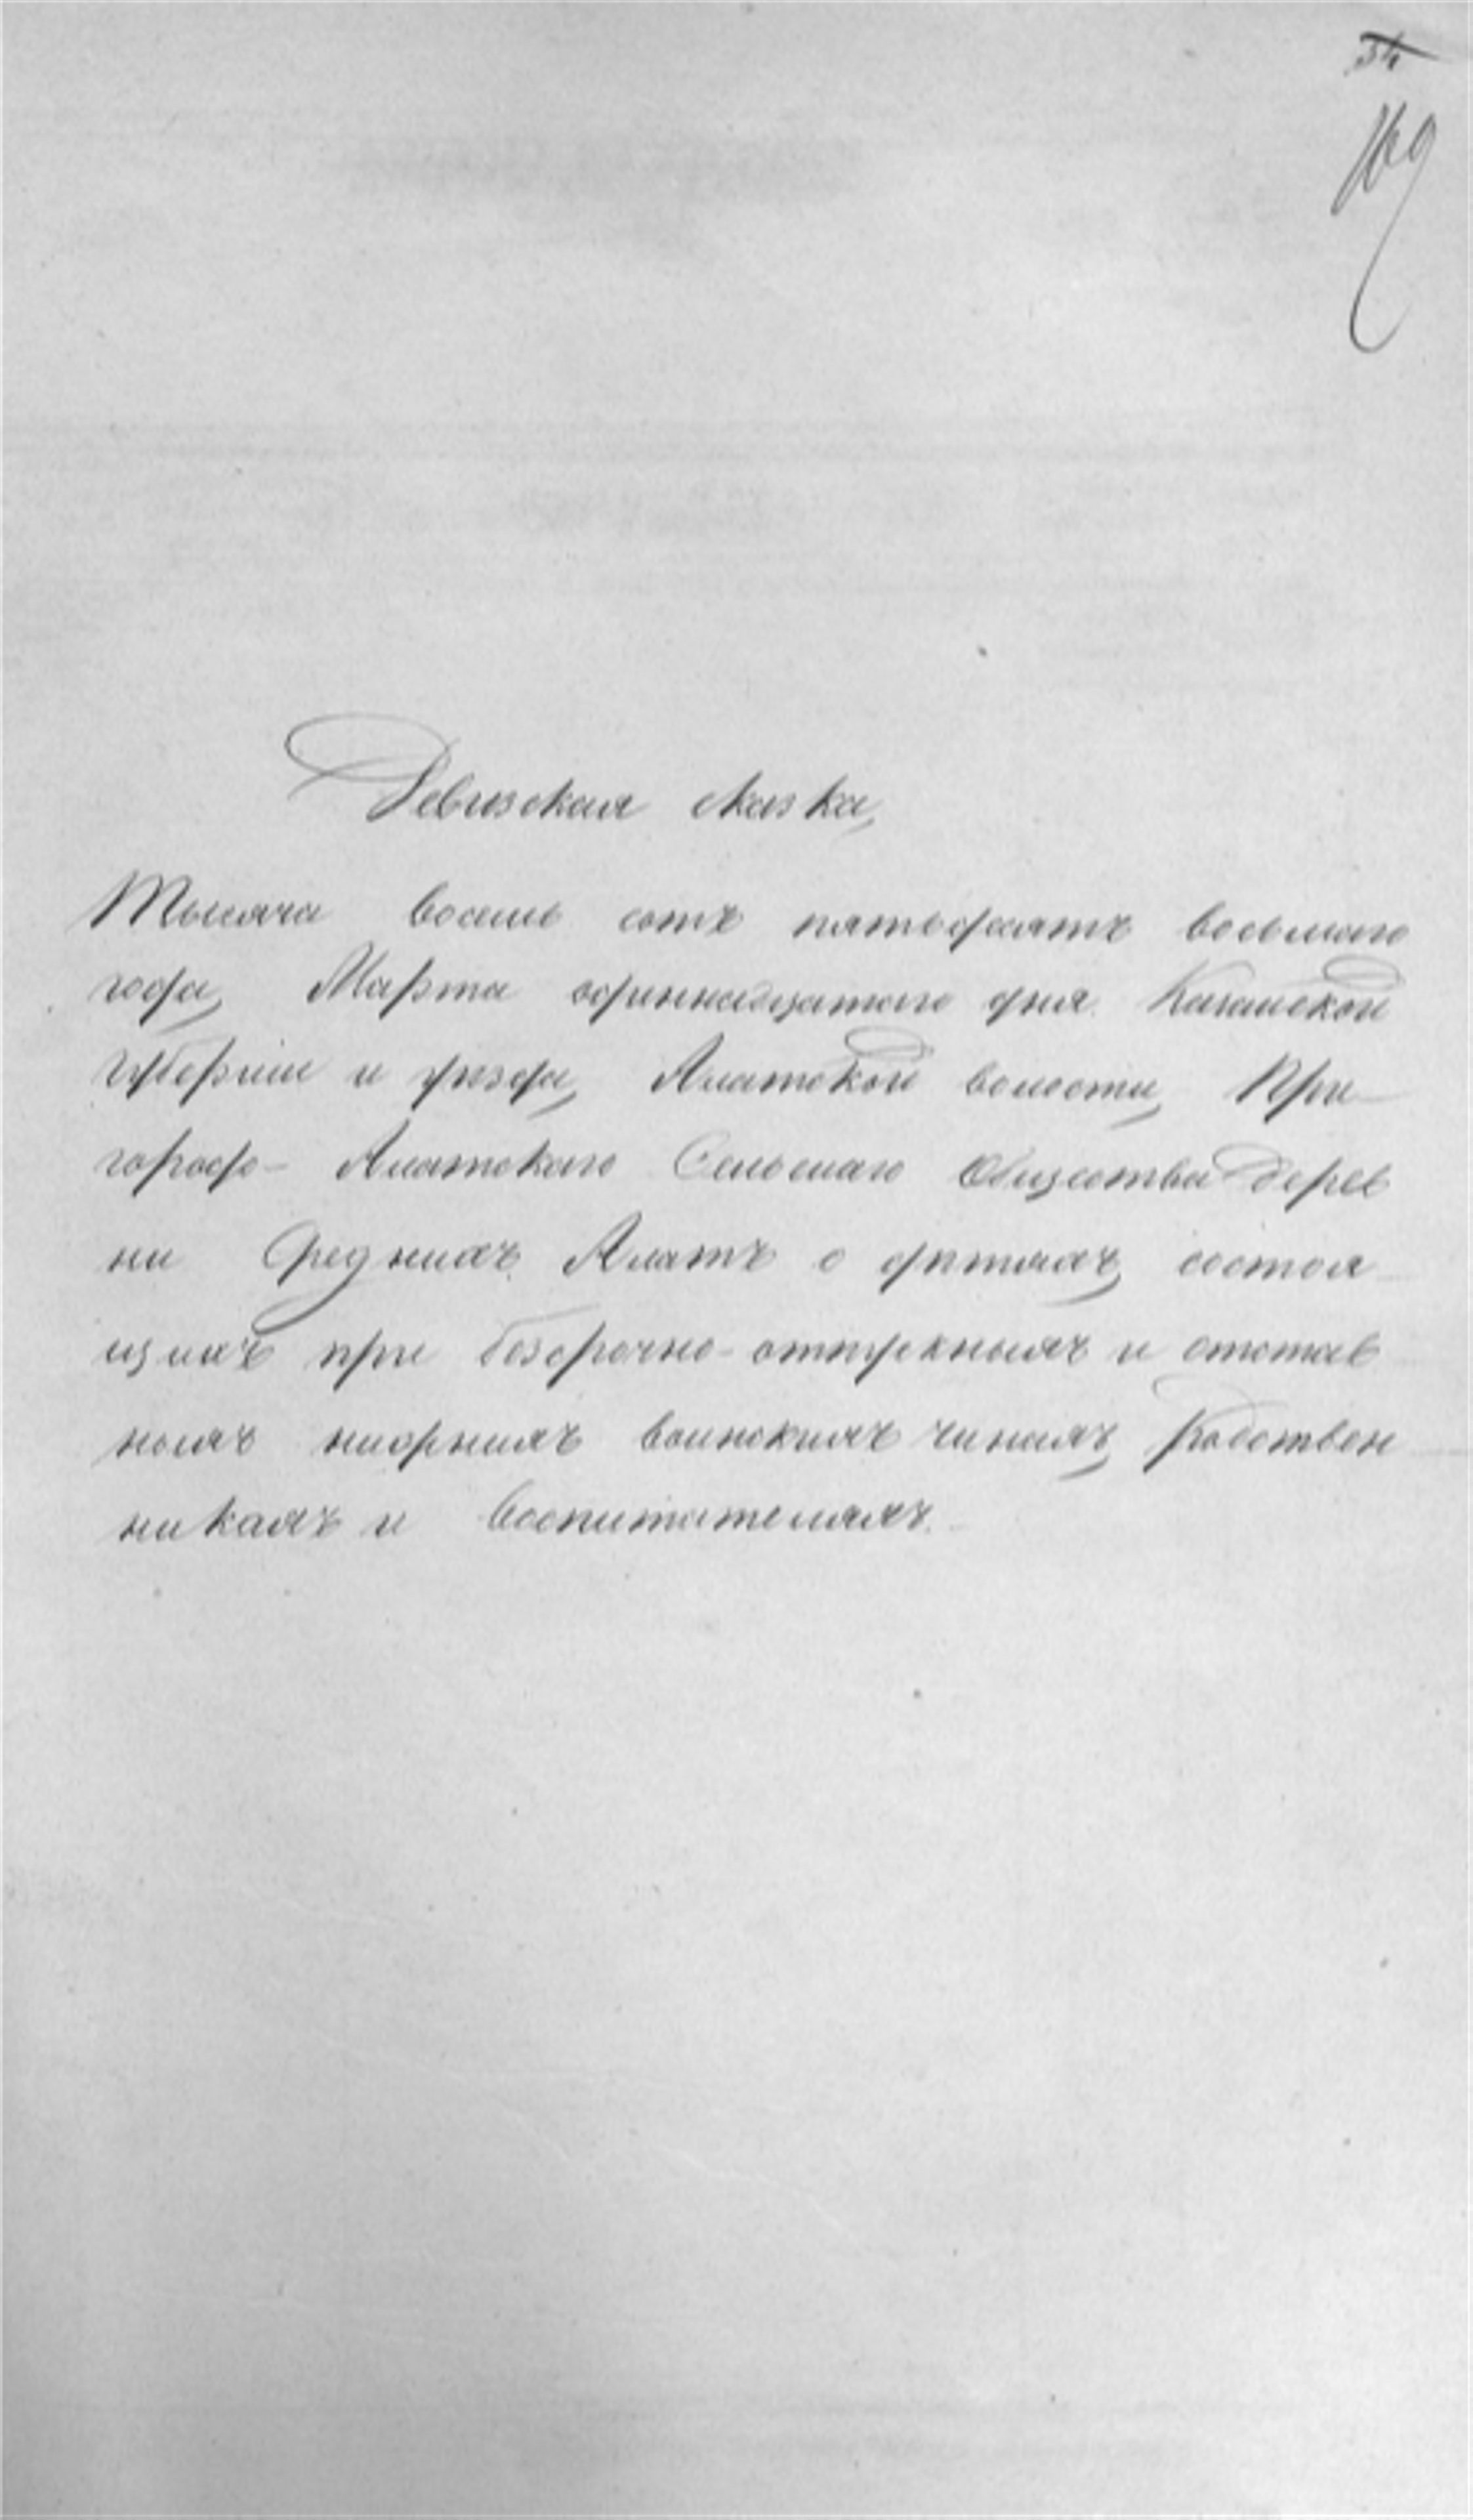 34
169
Ревизская сказка,
Тысяча восемь сотъ пятьдесятъ восьмаго
года, Марта одиннадцатаго дня Казанской
губернiи и уѣзда, Алатской волости, При-
городо- Алатскаго Сельскаго Общества дерев
ни Среднихъ Алатъ о дѣтяхъ, состоя
щихъ при безсрочно-отпускныхъ и отстав
ныхъ нижнихъ воинскихъ чинахъ, родствен
никахъ и воспитателяхъ.